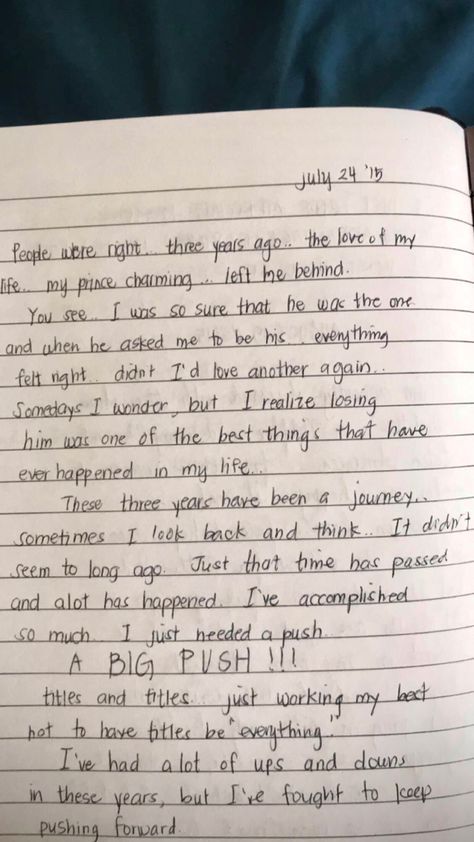 July 24 '15
People were right... three years ago.. the love of my
life... my prince charming... left me behind.
You see.. I was so sure that he was the one
and when he asked me to be his.. everything
felt right.. didn't I'd love another again..
Somedays I wonder, but I realize losing
him was one of the best things that have
ever happened in my life...
These three years have been a journey..
sometimes I look back and think.. It didn't
seem to long ago. Just that time has passed
and alot has happened. I've accomplished
so much. I just needed a push.
A BIG PUSH!!!
titles and titles. just working my best
not to have titles be "everything."
I've had alot of ups and downs
in these years, but I've fought to keep
pushing forward.